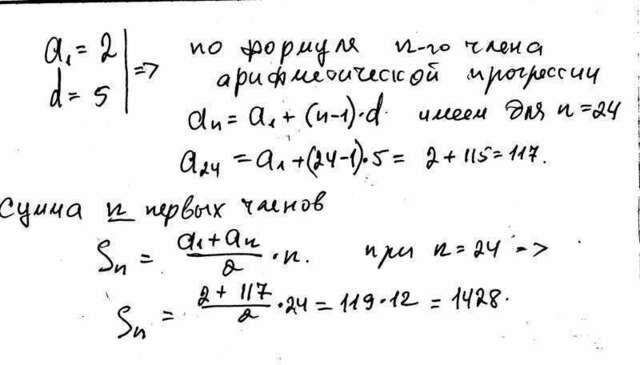 a₁ = 2 | => по формуле n-го члена
d = 5 | арифметической прогрессии
aₙ = a₁ + (n-1)·d имеем для n = 24
a₂₄ = a₁ + (24-1)·5 = 2 + 115 = 117.
Сумма n первых членов
Sₙ = (a₁ + aₙ)/2 · n. при n = 24 =>
Sₙ = (2 + 117)/2 · 24 = 119 · 12 = 1428.